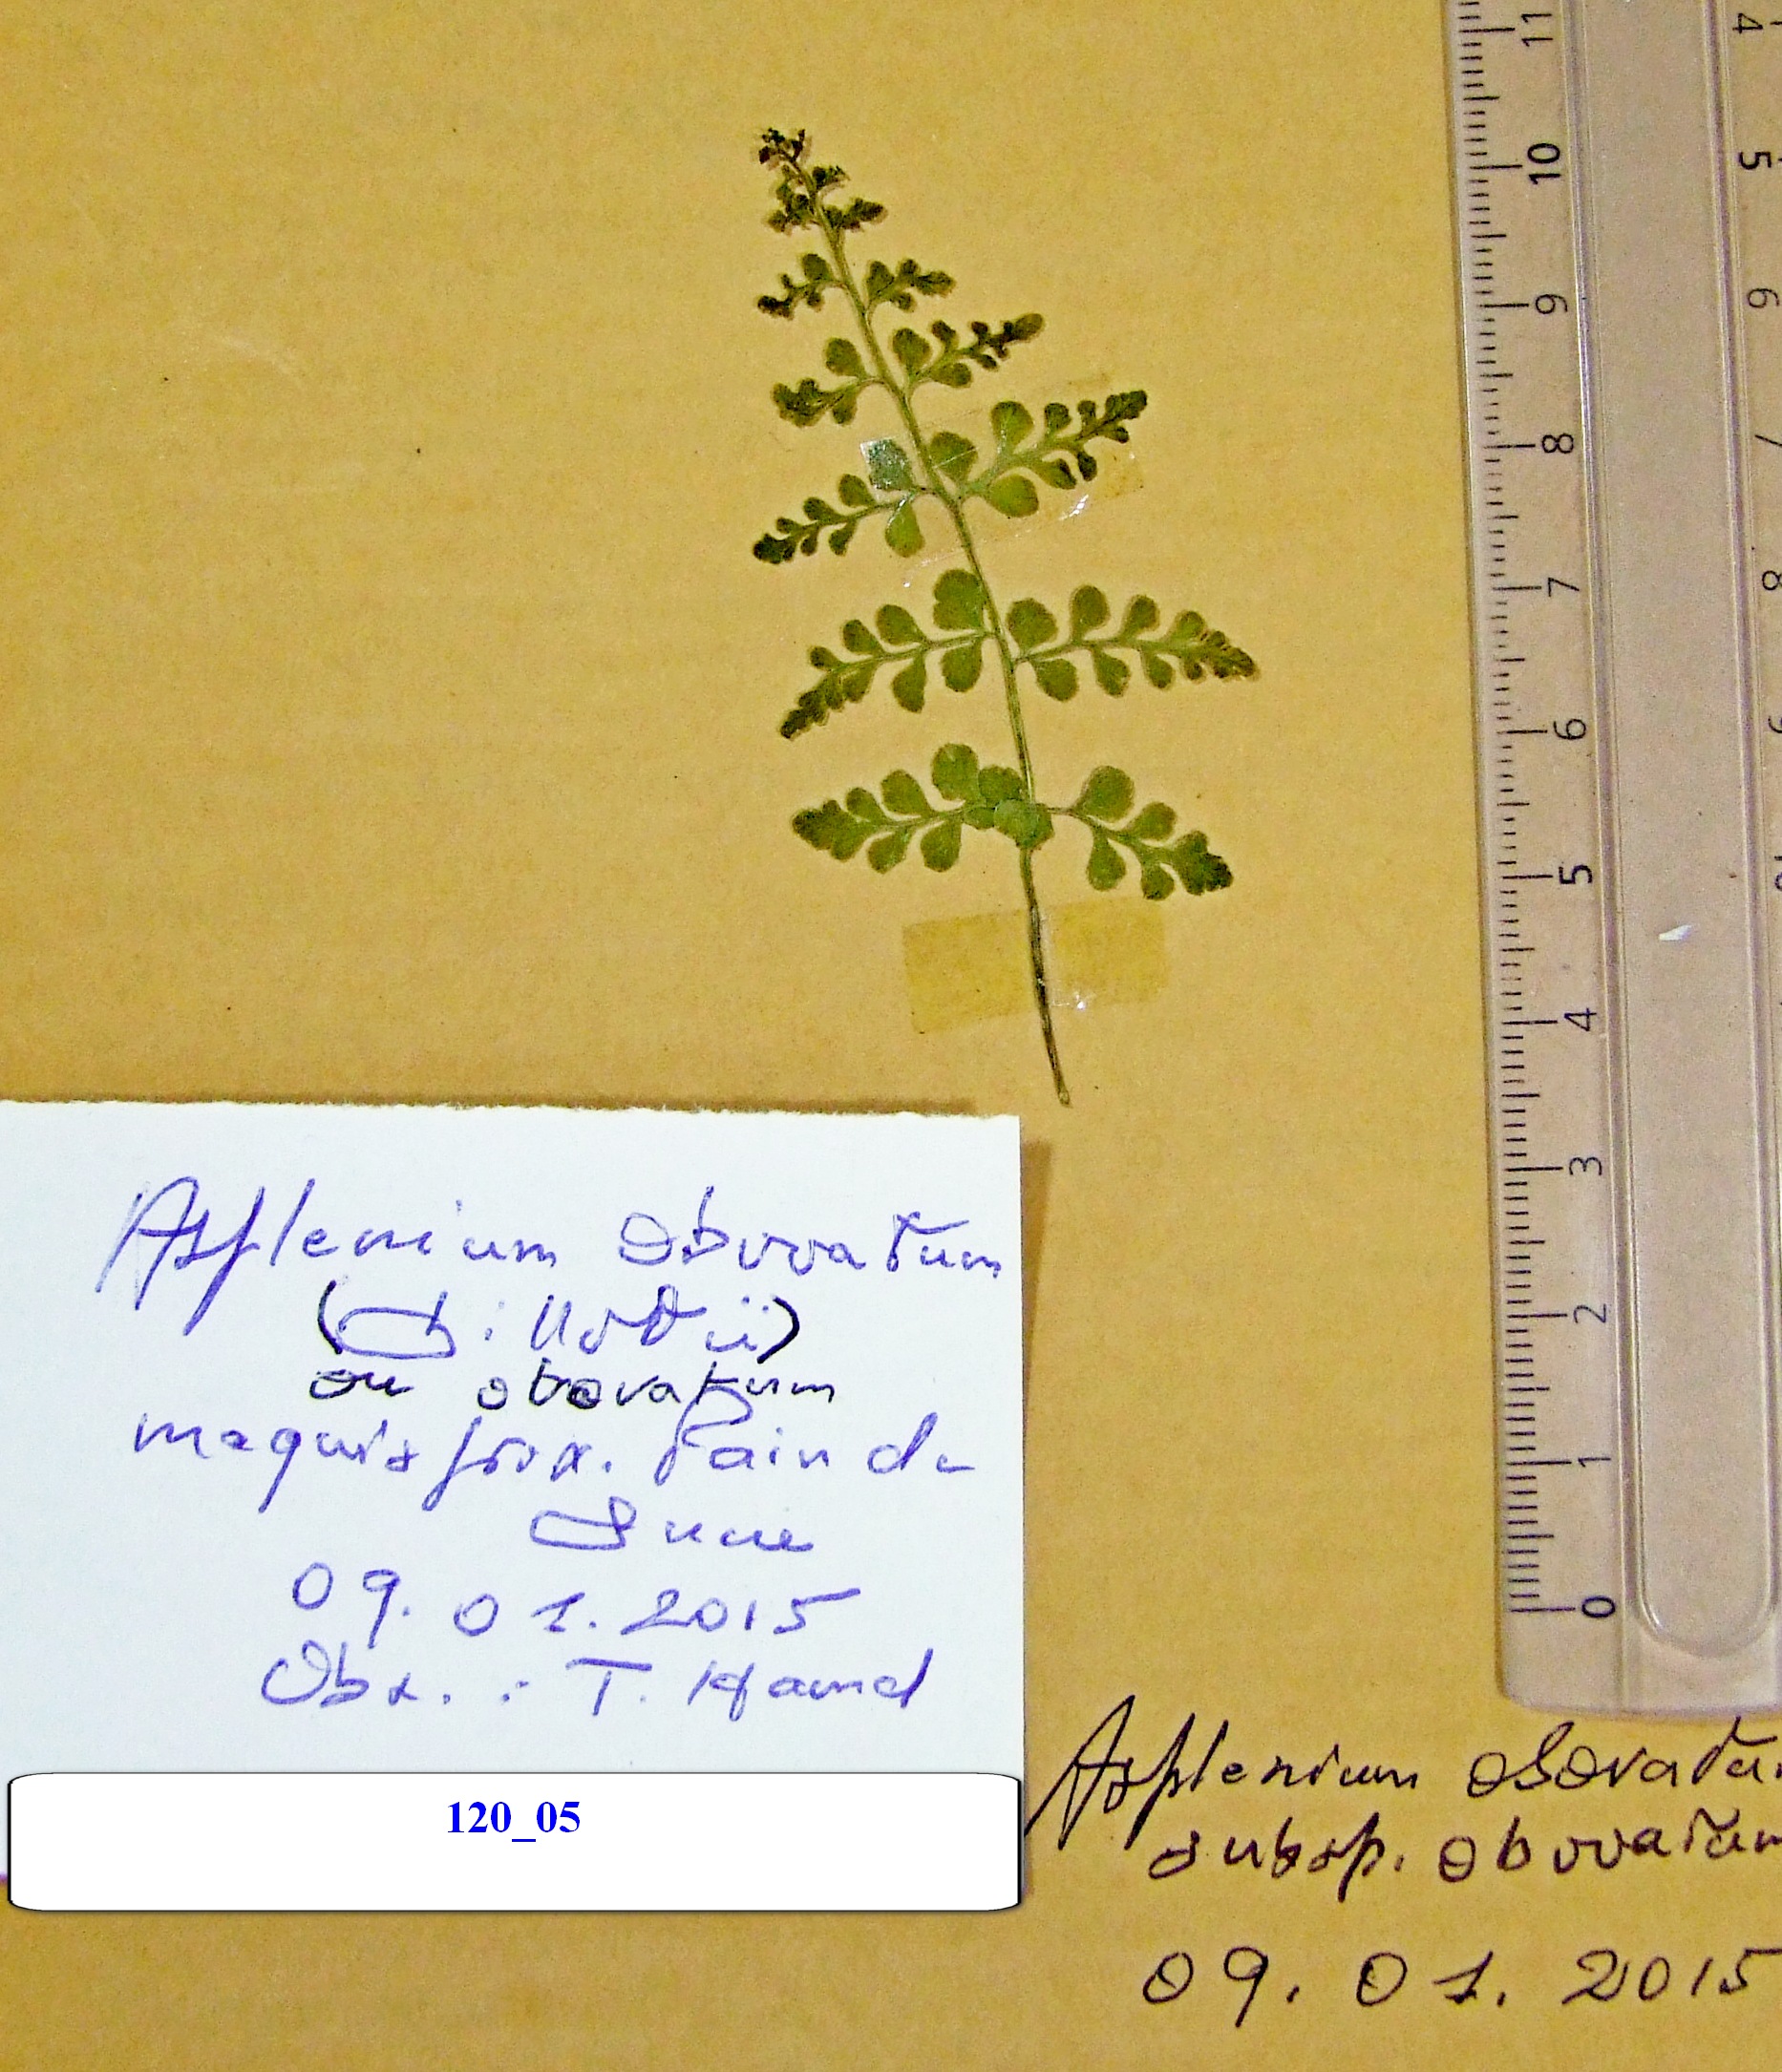 Asplenium obovatum
(billotii)
ou obovatum
maquis prox. Pain de
Sucre
09.01.2015
Obs. : T. Hamel
120_05
Asplenium obovatum
subsp. obovatum
09.01.2015
11
10
9
8
7
6
5
4
3
2
1
0
4
5
6
7
8
9
10